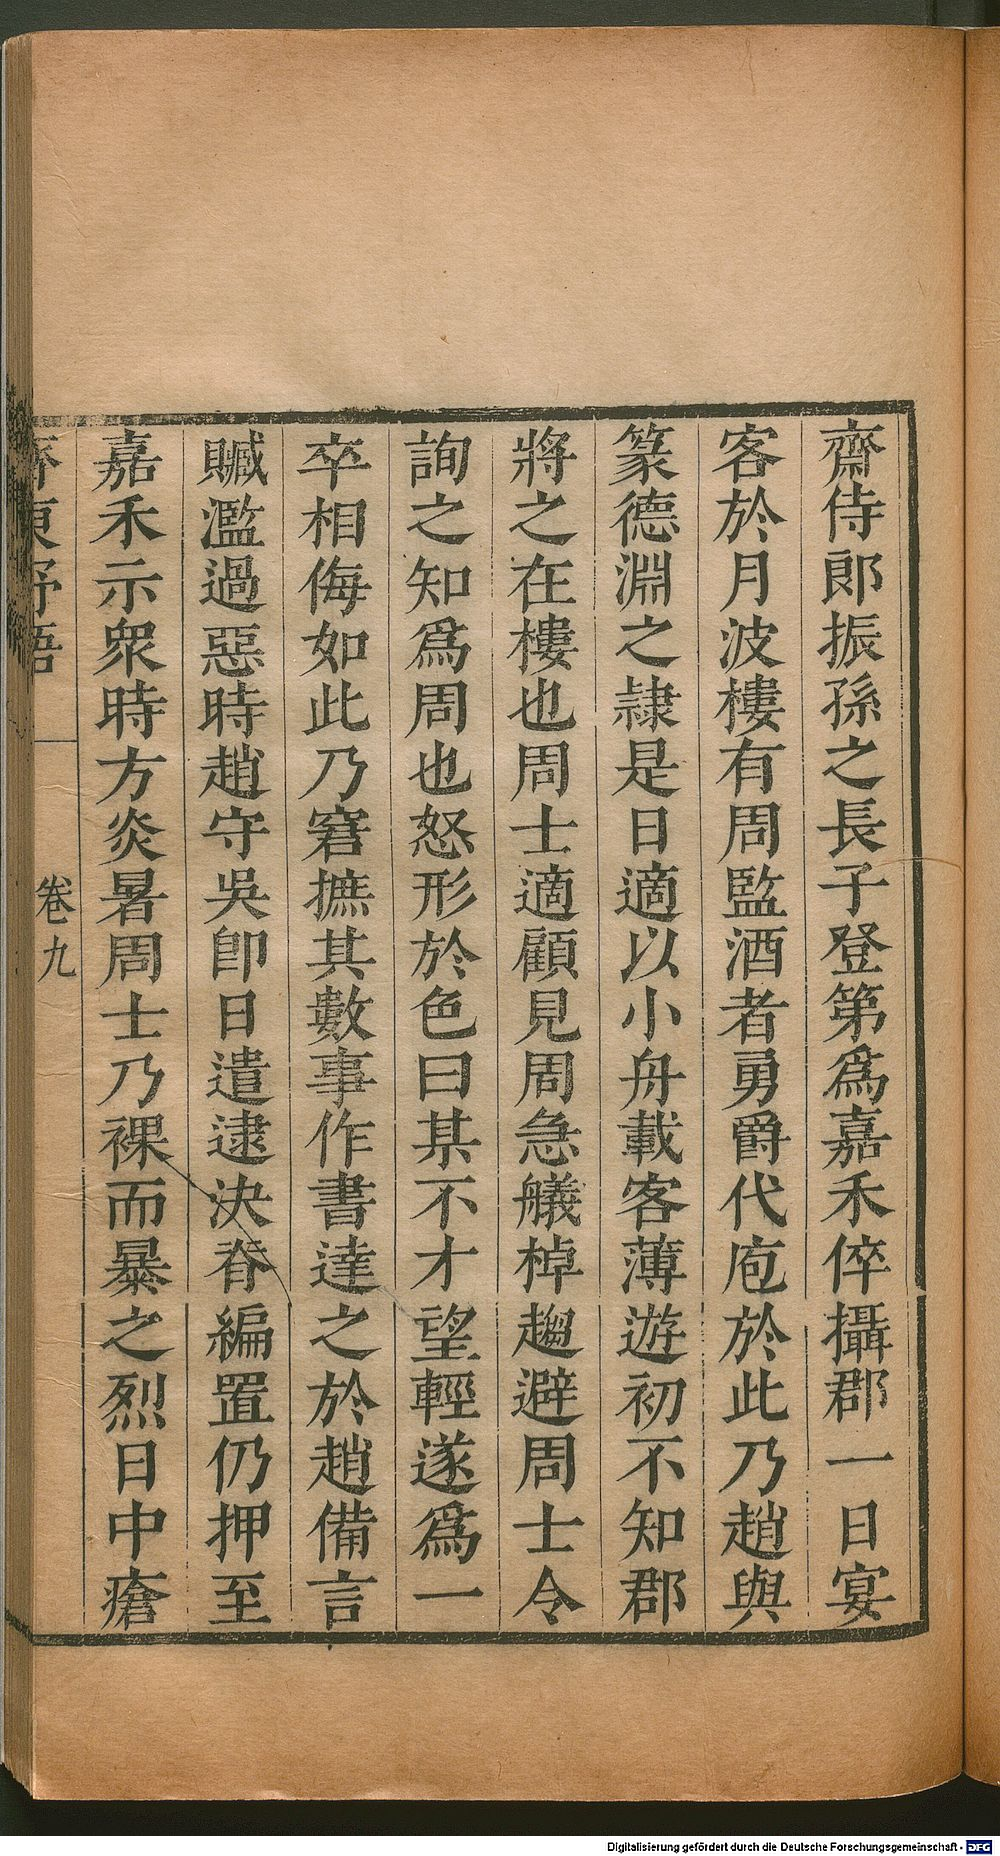 齋侍郞振孫之長子登第爲嘉禾倅攝郡一日宴
客於月波樓有周監酒者勇爵代庖於此乃趙與
篆德淵之隷是日適以小舟載客薄遊初不知郡
將之在樓也周士適顧見周急艤棹趨避周士令
詢之知爲周也怒形於色曰某不才望輕遂爲一
卒相侮如此乃窘摭其數事作書達之於趙備言
贓濫過惡時趙守吳卽日遣逮決脊編置仍押至
嘉禾示衆時方炎暑周士乃裸而暴之烈日中瘡
齊東野語
卷九
Digitalisierung gefördert durch die Deutsche Forschungsgemeinschaft - DFG